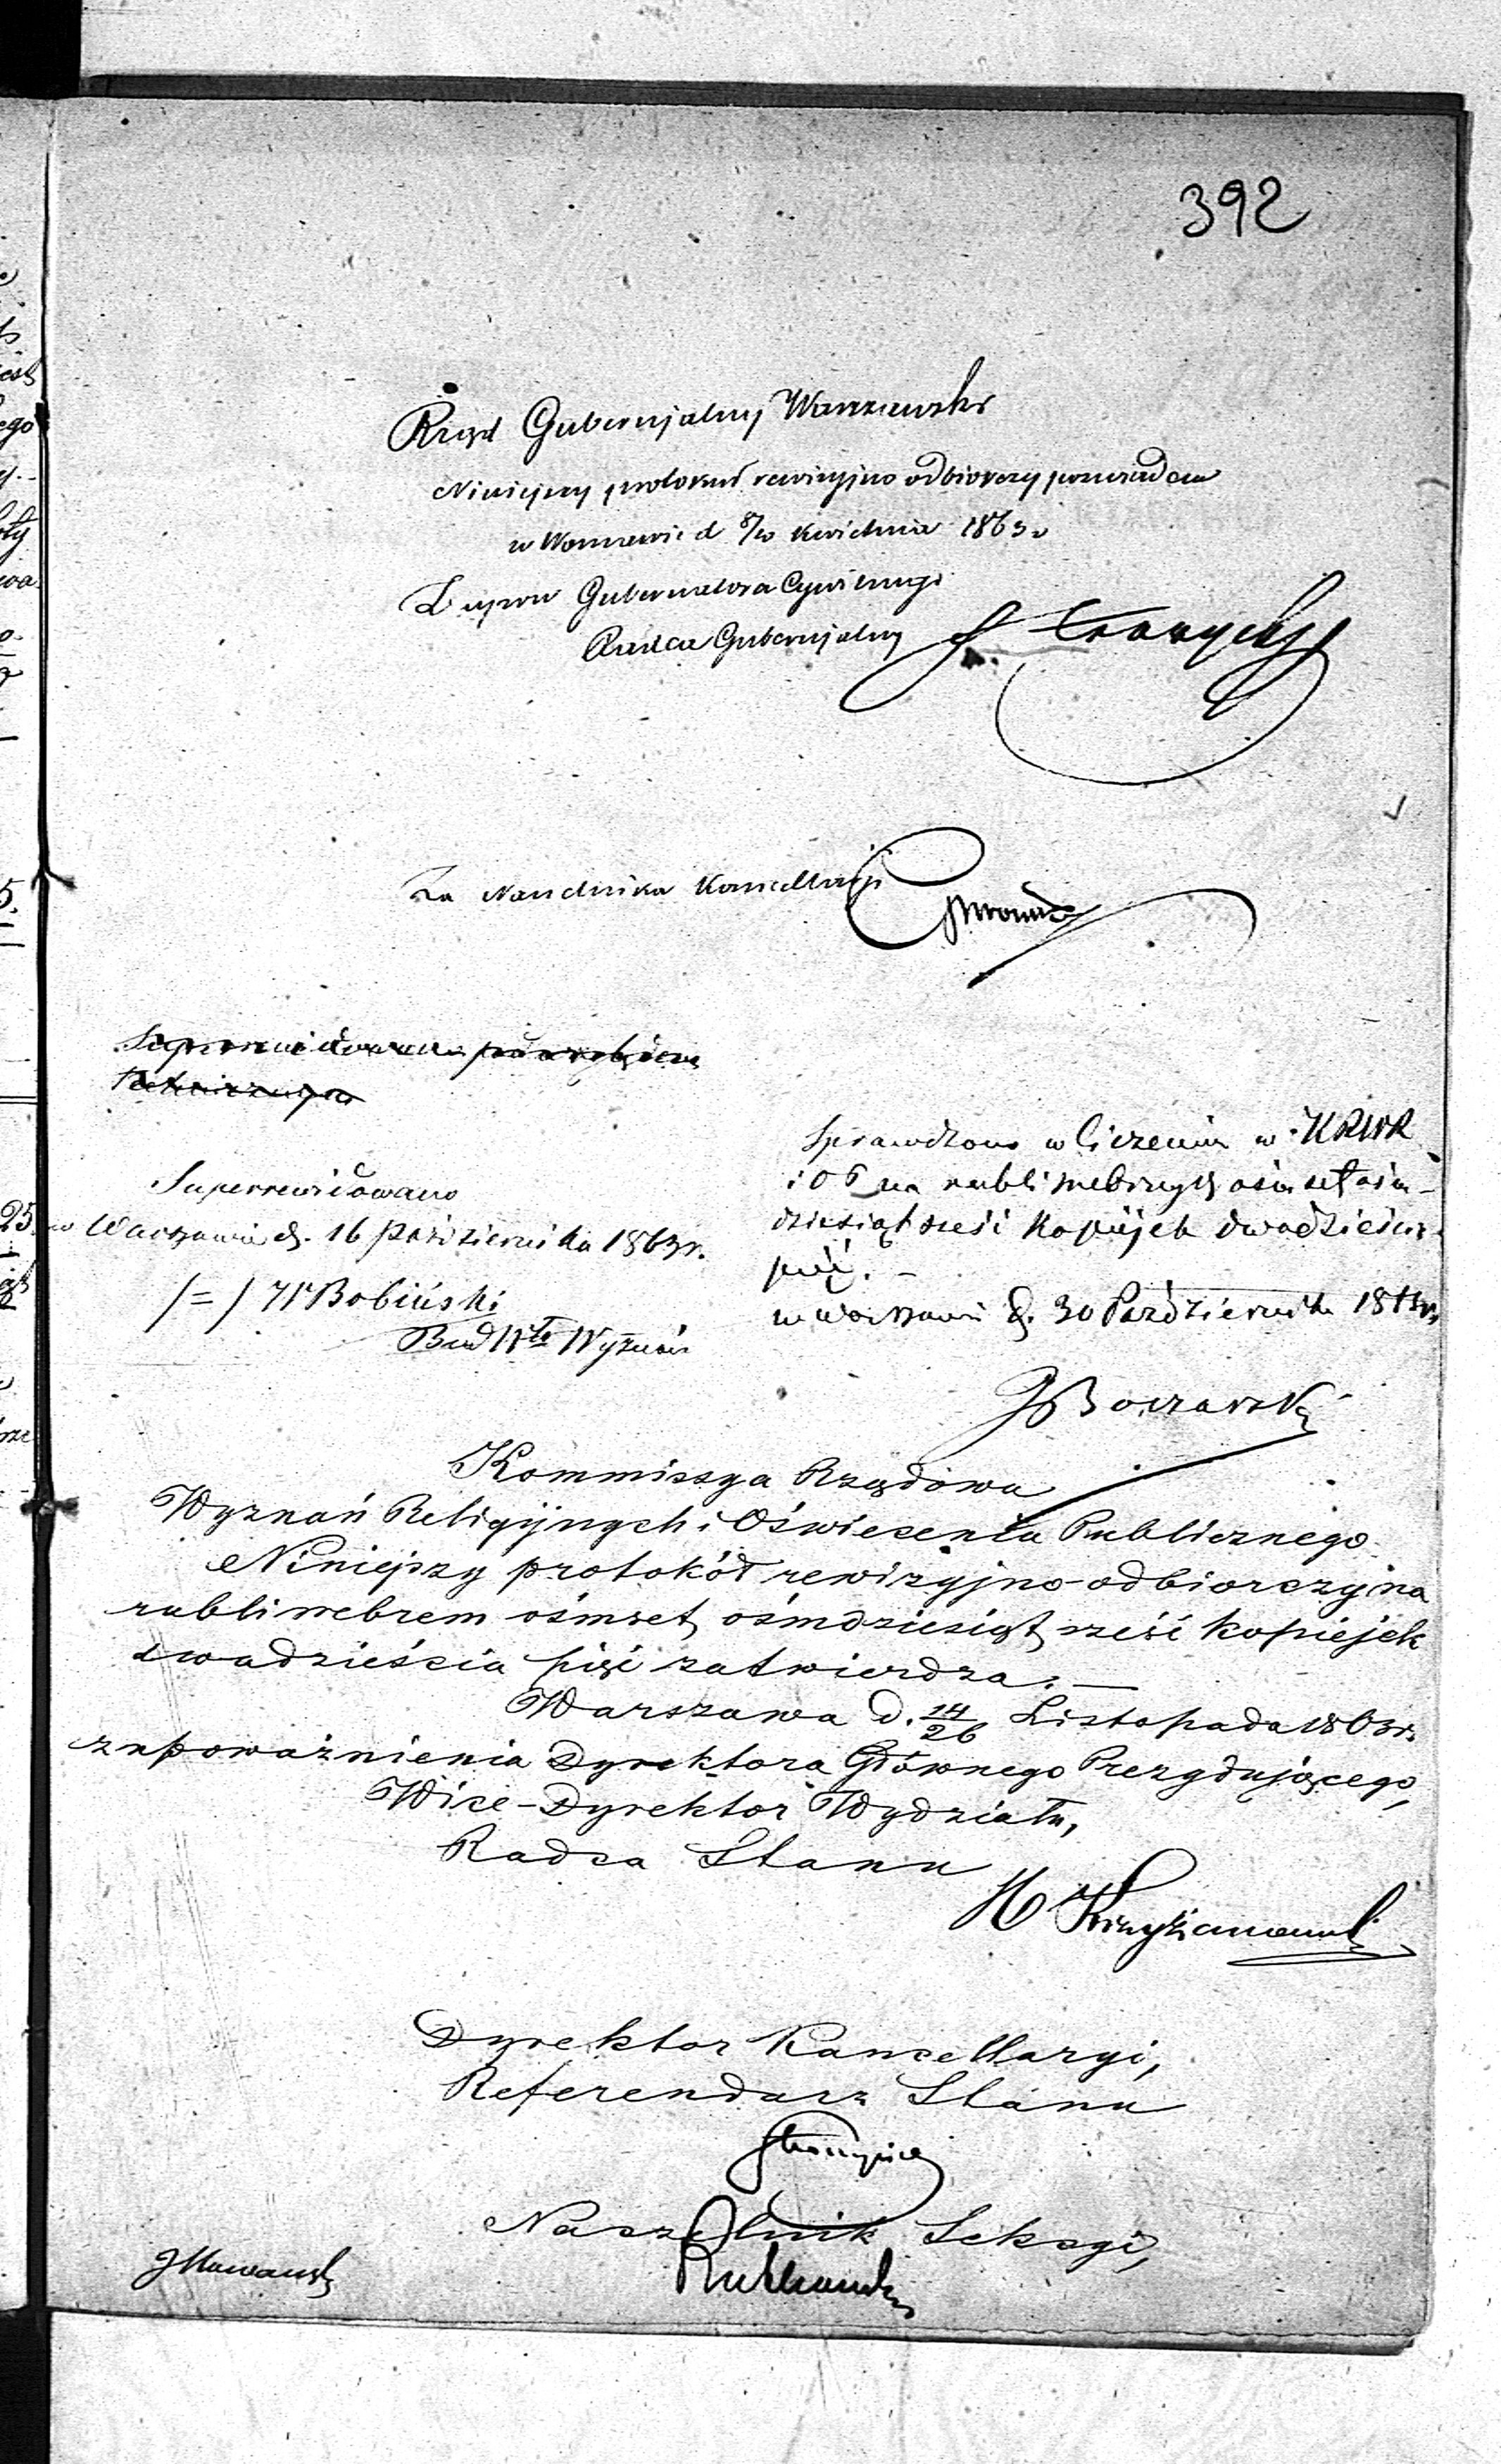 392
Rząd Gubernjalny Warszawski
Niniejszy protokuł rewizyjno odbiorczy poświadcza
w Warszawie d 8/20 Kwietnia 1863 r
Z upow Gubernatora Cywilnego
Radca Gubernjalny
Za Naczelnika Kancellaryi
Superrewidowano pod względem
technicznym
Superrewidowano
w Warszawie d. 16 Października 1863 r.
/=/ W Bobiński
Bud Wył Wyznań
Sprawdzono w liczeniu w KRWR
i OP na rubli srebrnych ośmset ośm-
dziesiąt sześć kopiejek dwadzieścia
pięć. —
w Warszawie d. 30 Października 1863 r.
Kommissya Rządowa
Wyznań Religijnych i Oświecenia Publicznego.
Niniejszy protokół rewizyjno-odbiorczy na
rubli srebrem ośmset ośmdziesiąt sześć kopiejek
dwadzieścia pięć zatwierdza. —
Warszawa d. 14/26 Listopada 1863 r.
z upoważnienia Dyrektora Głównego Prezydującego,
Wice-Dyrektor Wydziału,
Radca Stanu
H Krzyżanowski
Dyrektor Kancellaryi,
Referendarz Stanu
Naczelnik Sekcyi,
Rutkowski